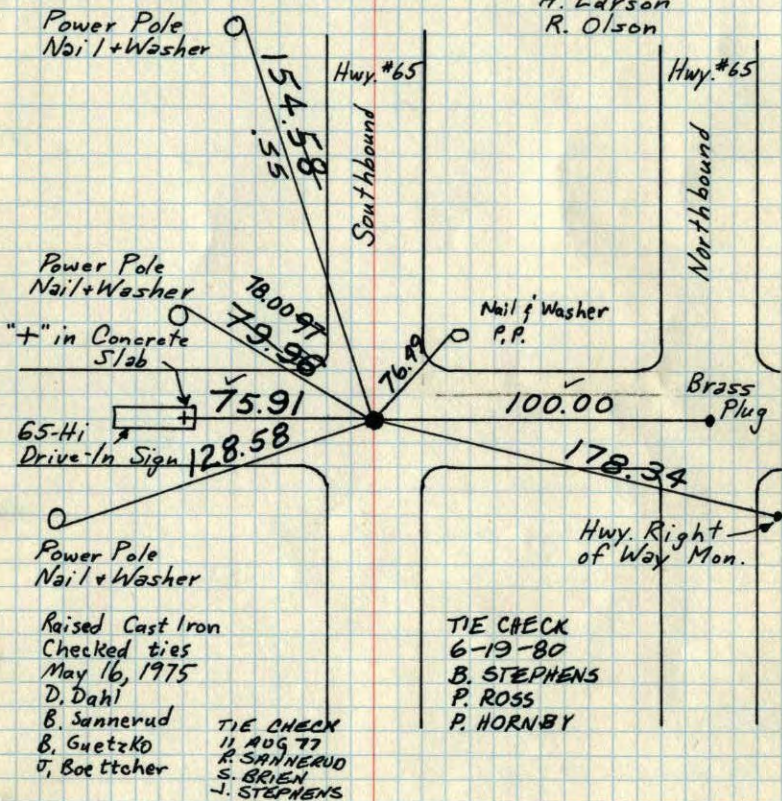 A. Larson
R. Olson
Power Pole
Nail + Washer
Hwy. #65
Hwy. #65
154.58
.55
Southbound
Northbound
Power Pole
Nail + Washer
78.00 97
79.98
Nail & Washer
P.P.
"+" in Concrete
Slab
76.49
75.91
100.00
Brass
Plug
65-Hi
Drive-In Sign
128.58
178.34
Hwy. Right
of Way Mon.
Power Pole
Nail + Washer
Raised Cast Iron
Checked ties
May 16, 1975
D. Dahl
B. Sannerud
B. Guetzko
J. Boettcher
TIE CHECK
11 AUG 77
R. SANNERUD
S. BRIEN
J. STEPHENS
TIE CHECK
6-19-80
B. STEPHENS
P. ROSS
P. HORNBY